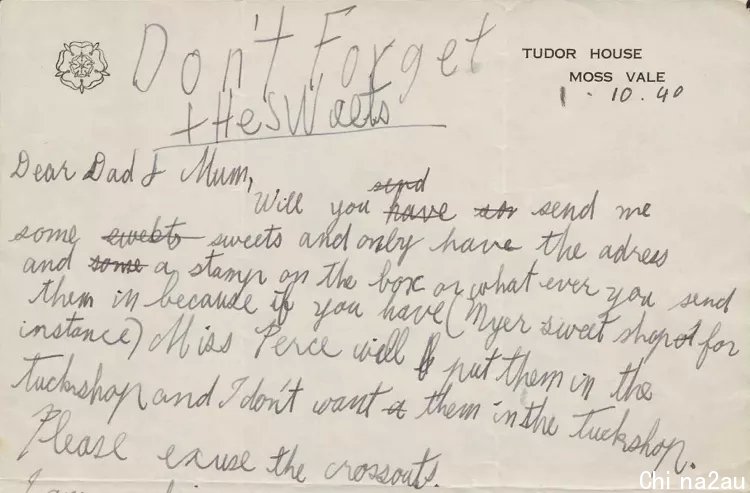 Don't Forget
the Swaets
TUDOR HOUSE
MOSS VALE
1 - 10. 40
Dear Dad & Mum,
send
Will you have son send me
some swebts sweets and only have the adress
and some a stamp on the box or what ever you send
them in because if you have (Myer sweet shop for
instance) Miss Perce will put them in the
tuckshop and I don't want a them in the tuckshop.
Please exuse the crossouts.
Chi na2au